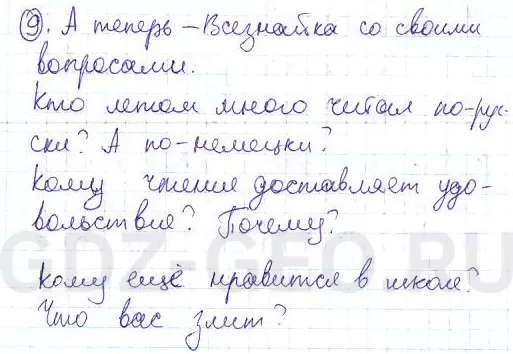 9. А теперь – Всезнайка со своими
вопросами.
Кто летом много читал по-рус-
ски? А по-немецки?
Кому чтение доставляет удо-
вольствие? Почему?
GDZ-GEO.RU
Кому ещё нравится в школе?
Что вас злит?